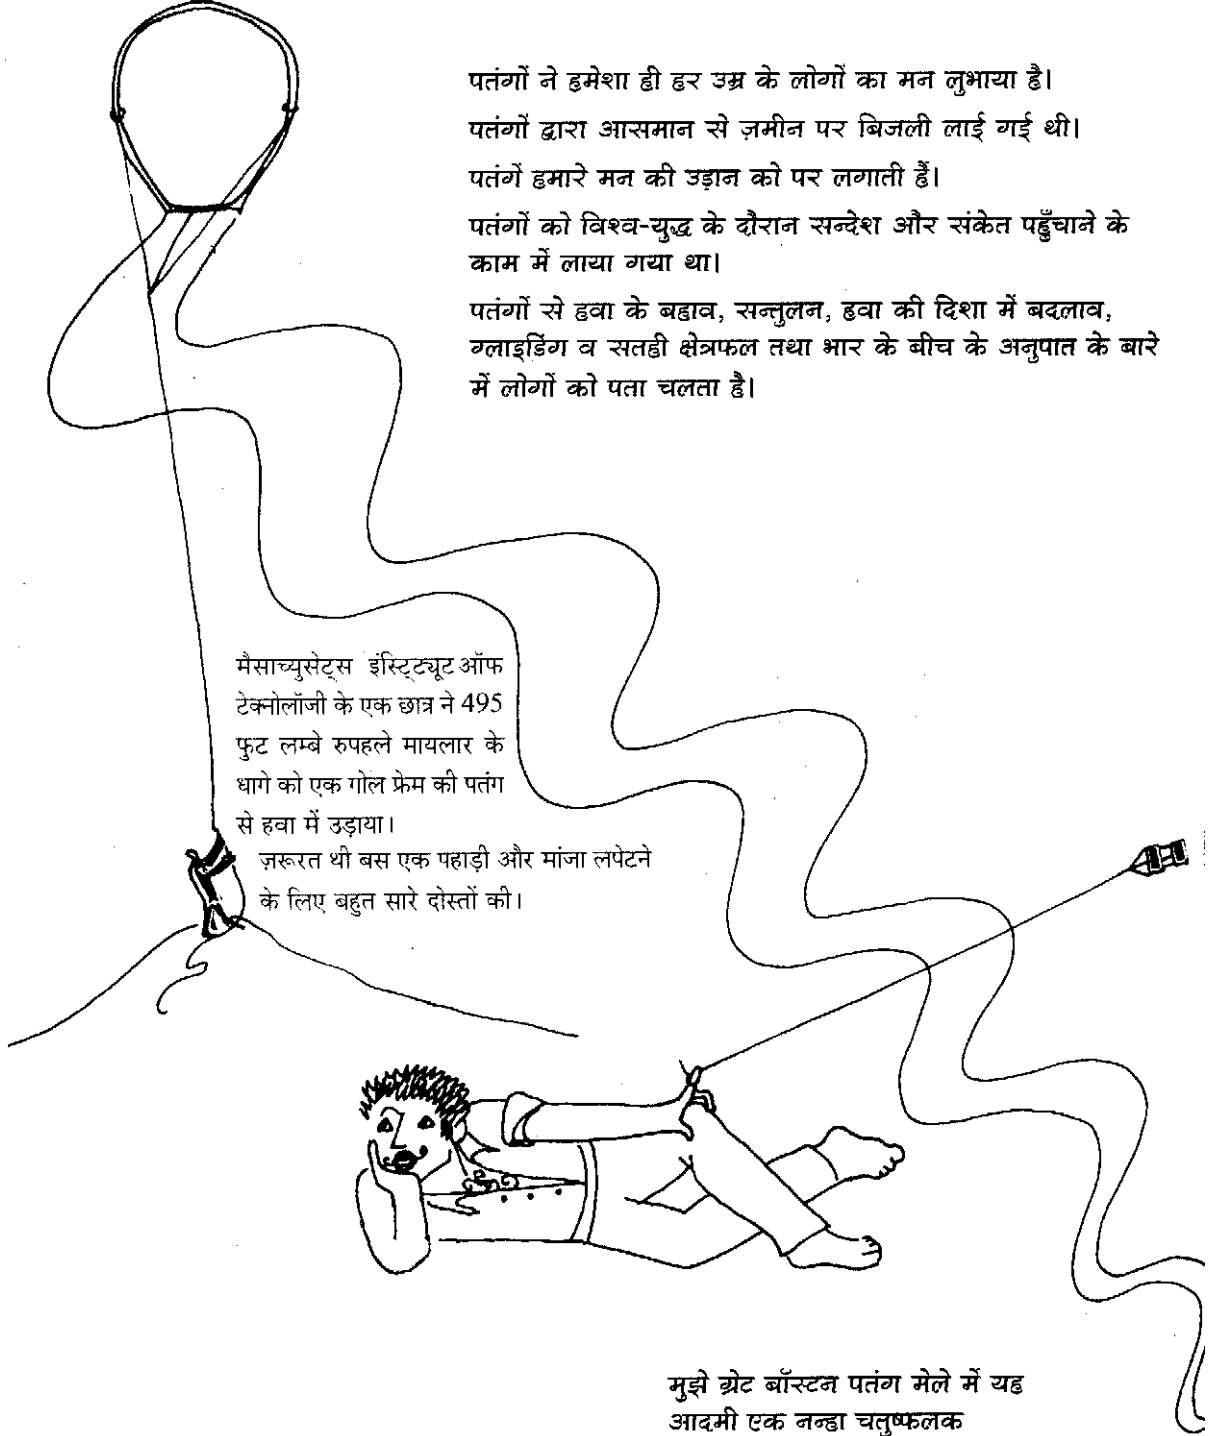 पतंगों ने हमेशा ही हर उम्र के लोगों का मन लुभाया है।
पतंगों द्वारा आसमान से ज़मीन पर बिजली लाई गई थी।
पतंगें हमारे मन की उड़ान को पर लगाती हैं।
पतंगों को विश्व-युद्ध के दौरान सन्देश और संकेत पहुँचाने के
काम में लाया गया था।
पतंगों से हवा के बहाव, सन्तुलन, हवा की दिशा में बदलाव,
ग्लाइडिंग व सतही क्षेत्रफल तथा भार के बीच के अनुपात के बारे
में लोगों को पता चलता है।
मैसाच्युसेट्स इंस्टिट्यूट ऑफ
टेक्नोलॉजी के एक छात्र ने 495
फुट लम्बे रुपहले मायलार के
धागे को एक गोल फ्रेम की पतंग
से हवा में उड़ाया।
ज़रूरत थी बस एक पहाड़ी और मांजा लपेटने
के लिए बहुत सारे दोस्तों की।
मुझे ग्रेट बॉस्टन पतंग मेले में यह
आदमी एक नन्हा चतुष्फलक